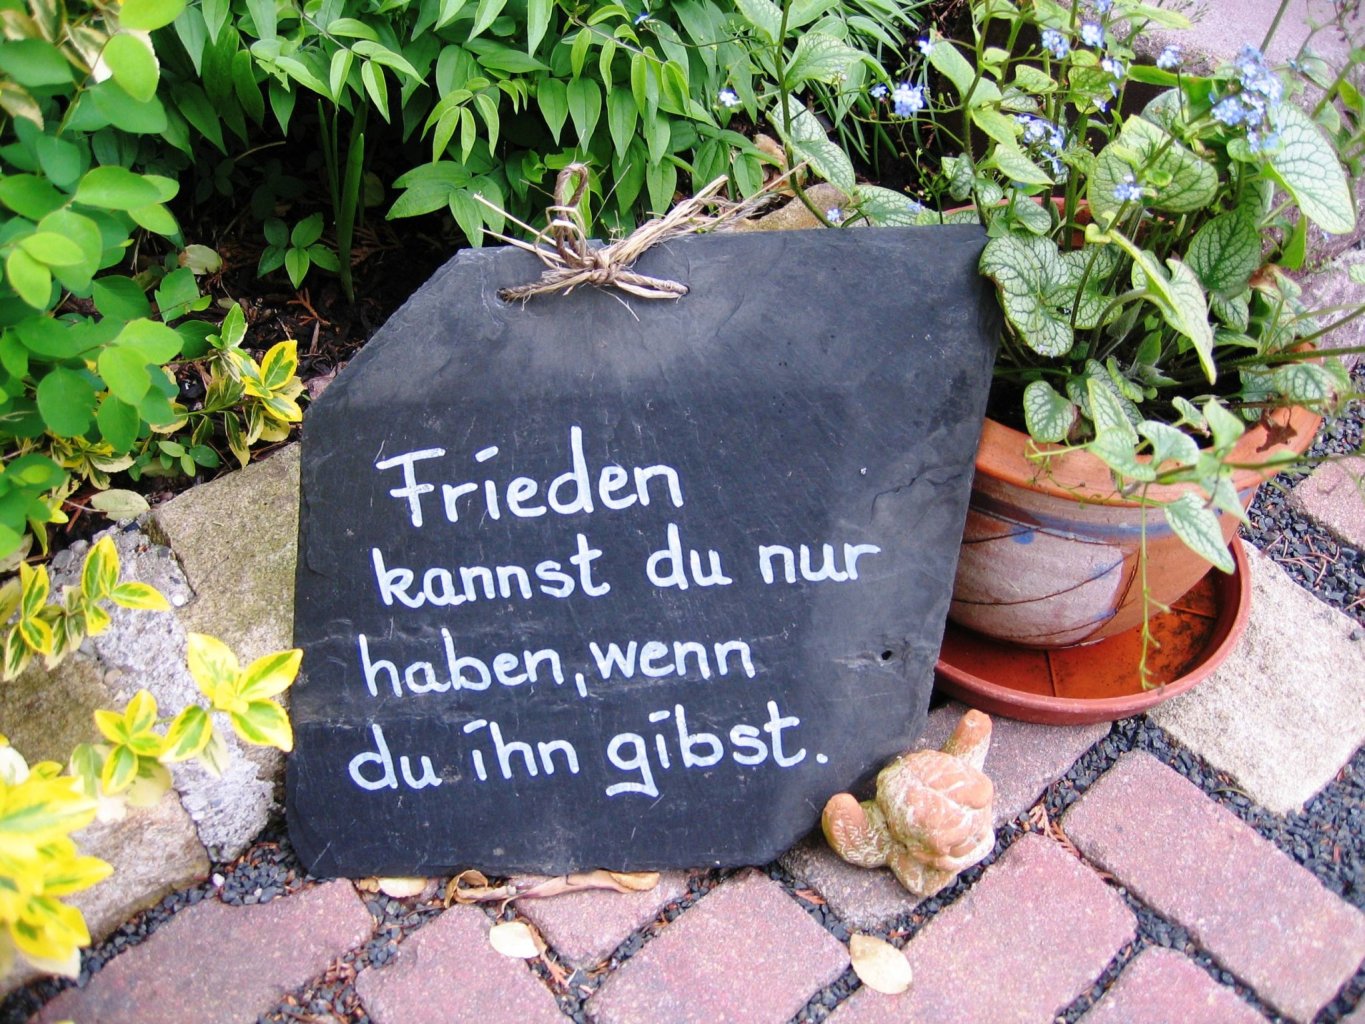 Frieden
kannst du nur
haben, wenn
du ihn gibst.